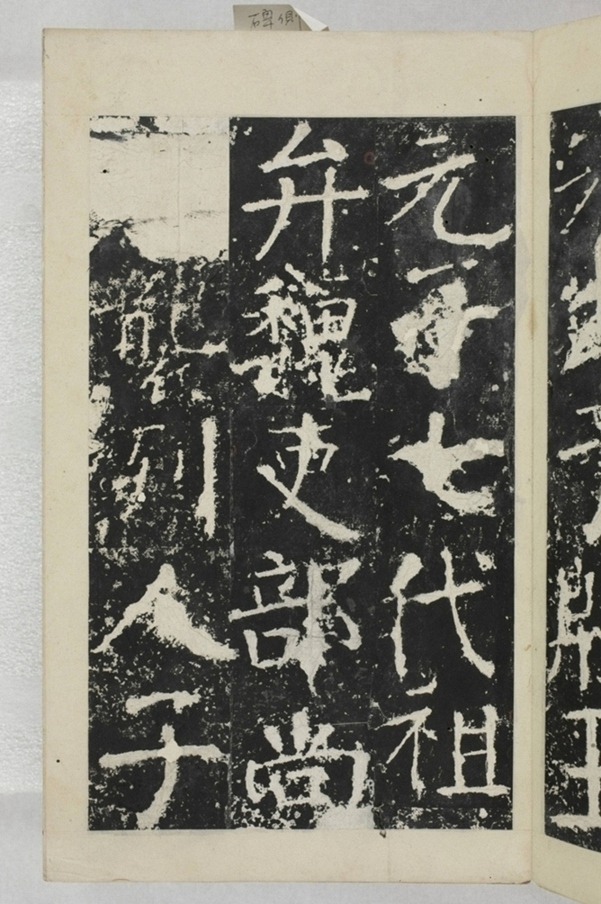 碑側
元子七代祖
弁魏吏部尚
列人子